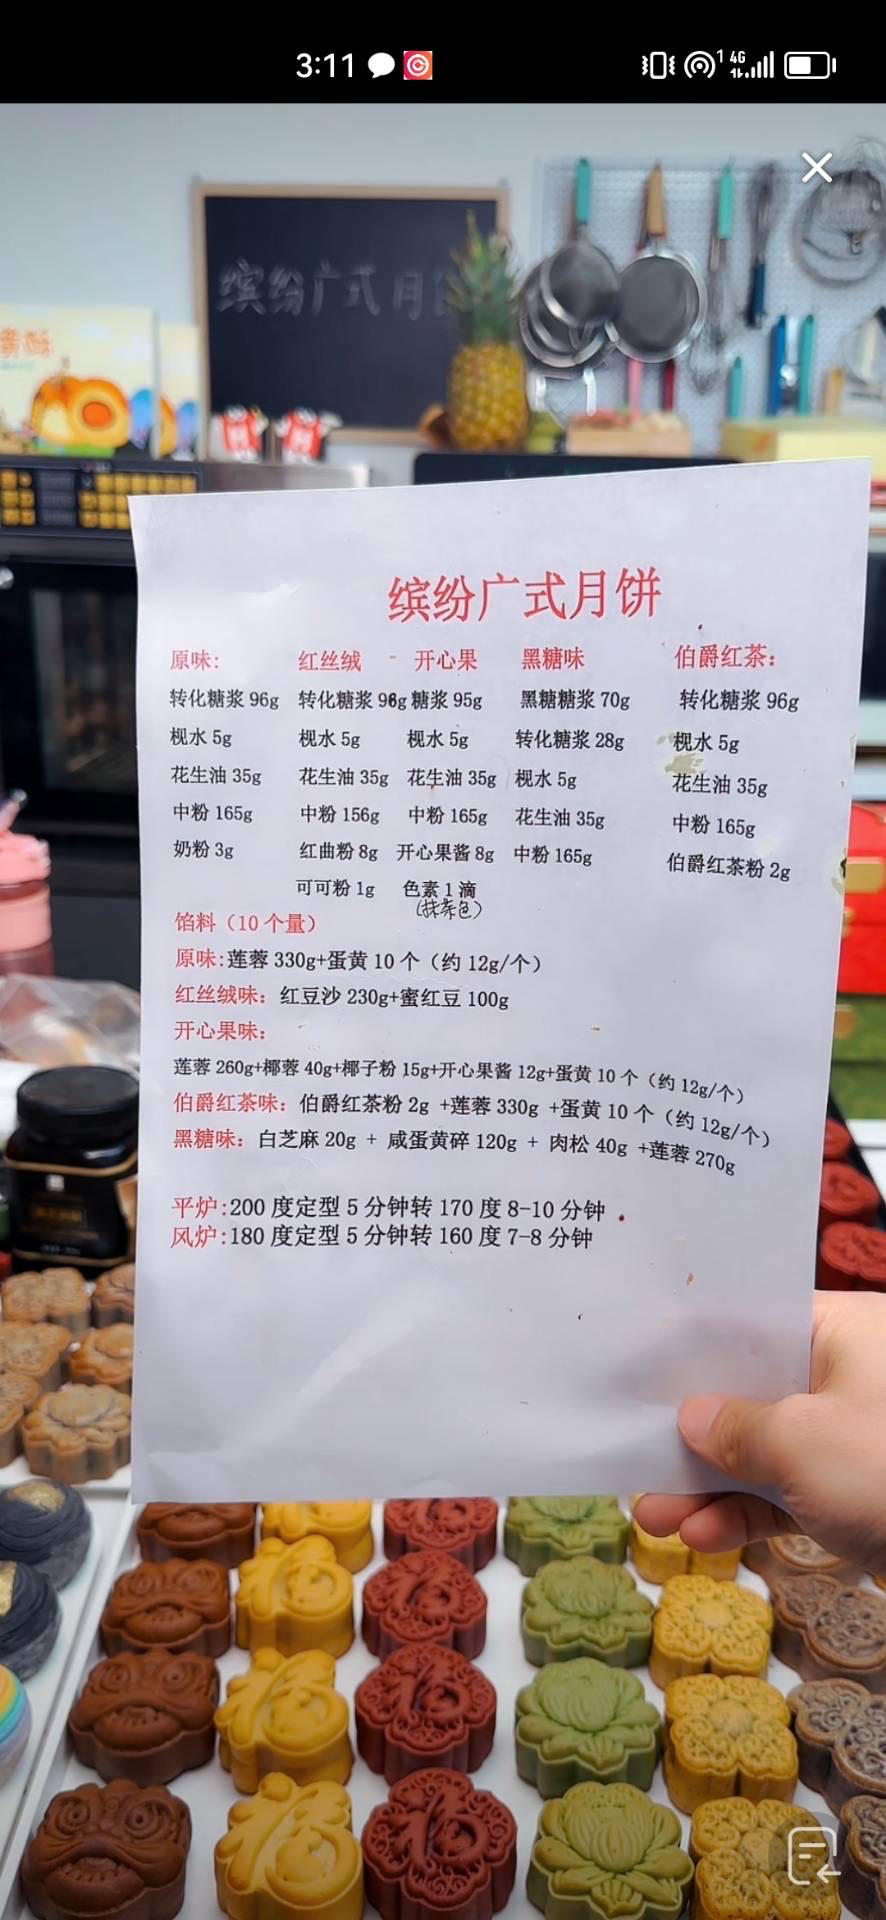 3:11
1 4G
缤纷广式月
缤纷广式月饼
原味: 红丝绒 - 开心果 黑糖味 伯爵红茶:
转化糖浆 96g 转化糖浆 96g 糖浆 95g 黑糖糖浆 70g 转化糖浆 96g
枧水 5g 枧水 5g 枧水 5g 转化糖浆 28g 枧水 5g
花生油 35g 花生油 35g 花生油 35g 枧水 5g 花生油 35g
中粉 165g 中粉 156g 中粉 165g 花生油 35g 中粉 165g
奶粉 3g 红曲粉 8g 开心果酱 8g 中粉 165g 伯爵红茶粉 2g
可可粉 1g 色素 1 滴
(抹茶色)
馅料（10 个量）
原味:莲蓉 330g+蛋黄 10 个（约 12g/个）
红丝绒味：红豆沙 230g+蜜红豆 100g
开心果味：
莲蓉 260g+椰蓉 40g+椰子粉 15g+开心果酱 12g+蛋黄 10 个（约 12g/个）
伯爵红茶味：伯爵红茶粉 2g +莲蓉 330g +蛋黄 10 个（约 12g/个）
黑糖味：白芝麻 20g + 咸蛋黄碎 120g + 肉松 40g +莲蓉 270g
平炉:200 度定型 5 分钟转 170 度 8-10 分钟
风炉:180 度定型 5 分钟转 160 度 7-8 分钟